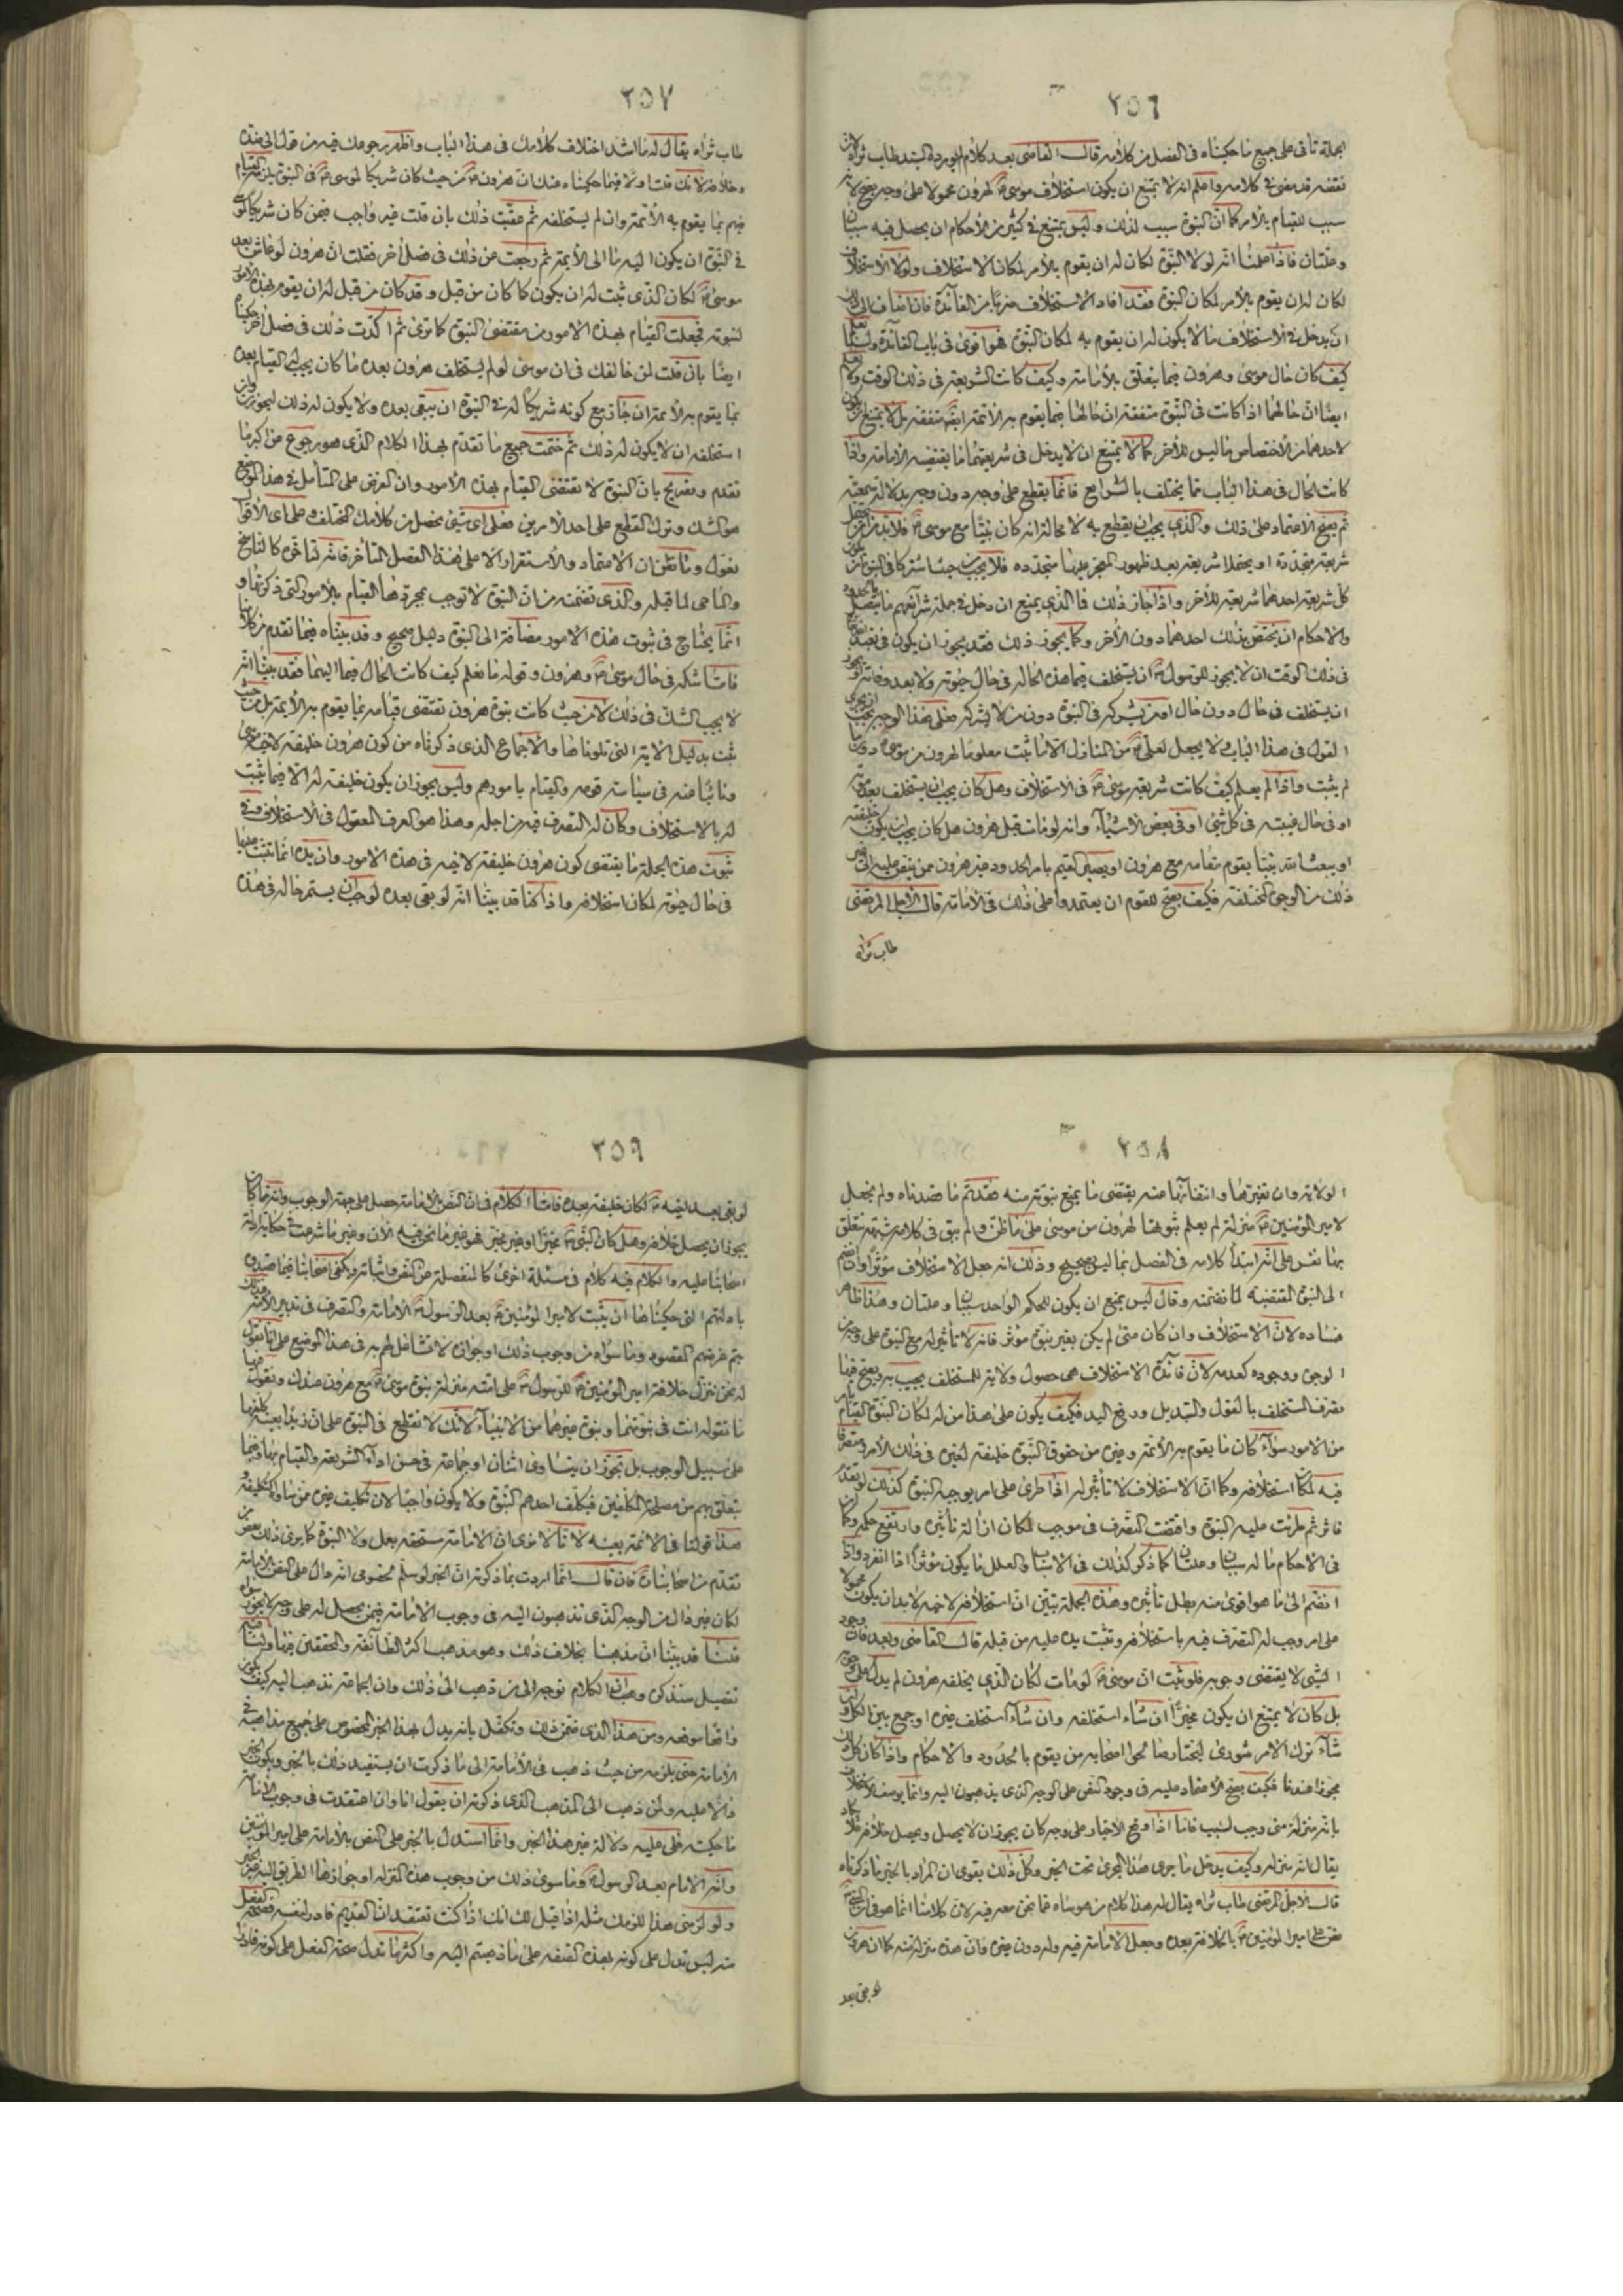 ٢٥٦
الجملة تأتى على جميع ما حكيناه فى الفصل من كلامه قال القاضى بعد كلام اورده السيد طاب ثراه لان
نقضه قد مضى فى كلامه واعلم انه لا يمتنع ان يكون استخلاف موسى لهرون محمولا على وجه يصح لانه
سبب للقيام بالامر كما ان النبوة سبب لذلك وليس يمتنع فى كثير من الاحكام ان يحصل فيه سببان
وعلتان فاذا علمنا انه لولا النبوة لكان له ان يقوم بالامر لمكان الاستخلاف ولولا الاستخلاف
لكان له ان يقوم بالامر لمكان النبوة فقد افاد الاستخلاف ضربا من الفائدة فان انضاف الى ذلك
ان يدخل فى الاستخلاف ما لا يكون له ان يقوم به لمكان النبوة فهو اقوى فى باب الفائدة ولسنا نعلم
كيف كان حال موسى وهرون فيما يتعلق بالامامة وكيف كانت الشريعة فى ذلك الوقت ولا نعلم
ايضا ان حالهما اذا كانت فى النبوة متفقة ان حالهما فيما يقوم به الائمة ايضا متفقة بل لا يمتنع ان يكون
لاحدهما من الاختصاص ما ليس للآخر كما لا يمتنع ان لا يدخل فى شريعتهما ما يقتضيه الامامة واذا
كانت الحال فى هذا الباب مما يختلف بالشرايع فانما يقطع على وجه دون وجه بدلالة سمعية
ثم يصح الاعتماد على ذلك والذى يجب ان يقطع به لا محالة انه كان نبيا مع موسى فلا بد من ان يتحمل
شريعة متجددة او يتحملا شريعة بعد ظهور المعجز عليهما متجددة فلا يجب من حيث اشتركا فى النبوة ان يكون
كل شريعة احدهما شريعة للآخر واذا جاز ذلك فما الذى يمنع ان دخل فى جملة شرائعهم ما يتصل بالحدود
والاحكام ان يختص بذلك احدهما دون الآخر وكما يجوز ذلك فقد يجوز ان يكون فى تعبد
فى ذلك الوقت ان لا يجوز للرسول ان يستخلف فيما هذه الحالة فى حال حيوته ولا بعد وفاته او يجوز
ان يستخلف فى حال دون حال او من يشركه فى النبوة دون من لا يشركه فعلى هذا الوجه يجب ان يجرى
القول فى هذا الباب ولا يجعل لعلى من المنازل الا ما ثبت معلوما لهرون من موسى دون ما
لم يثبت واذا لم يعلم كيف كانت شريعة موسى فى الاستخلاف وهل كان يجب ان يستخلف بعد موته
او فى حال غيبته فى كل شئ او فى بعض الاشياء وانه لو مات قبل هرون هل كان يجب ان يكون خليفته
او يبعث الله نبيا يقوم مقامه مع هرون او يصير المقيم بامر الحدود غير هرون ممن ينص عليه الى غير
ذلك من الوجوه المختلفة فكيف يصح للقوم ان يعتمدوا على ذلك فى الامامة قال الاجل المرتضى
طاب ثراه
٢٥٧
طاب ثراه يقال له ما اشد اختلاف كلامك فى هذا الباب واظهر رجوعك فيه من قول الى ضده
وخلافه لانك قلت اولا فيما حكيناه عنك ان هرون من حيث كان شريكا لموسى فى النبوة يلزمه القيام
فيهم بما يقوم به الائمة وان لم يستخلفه ثم عقبت ذلك بان قلت غير واجب فيمن كان شريكا لموسى
فى النبوة ان يكون اليه ما الى الائمة ثم رجعت عن ذلك فى فصل آخر فقلت ان هرون لو عاش بعد
موسى لكان الذى ثبت له ان يكون كما كان من قبل وقد كان من قبل له ان يقوم بهذه الامور
لنبوته فجعلت القيام بهذه الامور من مقتضى النبوة كما ترى ثم اكدت ذلك فى فصل آخر حكيناه
ايضا بان قلت لمن خالفك فى ان موسى لو لم يستخلف هرون بعده ما كان يجب له القيام بعده
بما يقوم به الائمة ان جاز مع كونه شريكا له فى النبوة ان يبقى بعده ولا يكون له ذلك ليجوزن وان
استخلفه ان لا يكون له ذلك ثم ختمت جميع ما تقدم بهذا الكلام الذى هو رجوع عن اكثر ما
تقدم وتصريح بان النبوة لا تقتضى القيام بهذه الامور وان الفرض على التأمل فى هذا الموضع
هو الشك وترك القطع على احد الامرين فعلى اى شئ نحصل من كلامك المختلف وعلى اى الاقوال
نعول وما نظن ان الاعتماد والاستقرار الا على هذا الفصل المتأخر فانه بتأخره كالناسخ
والماحى لما قبله والذى تضمنه من ان النبوة لا توجب بمجردها القيام بالامور التى ذكرتها و
انما يحتاج فى ثبوت هذه الامور مضافة الى النبوة دليل صحيح وقد بيناه فيما تقدم من كلامنا
فاما شكه فى حال موسى وهرون وقوله ما نعلم كيف كانت الحال فيما اليهما فقد بينا انه
لا يجب الشك فى ذلك لا من حيث كانت نبوة هرون تقتضى قيامه بما يقوم به الائمة بل من حيث
ثبت بدليل الآية التى تلوناها والاجماع الذى ذكرناه من كون هرون خليفة لاخيه موسى
ونائبا عنه فى سياسة قومه والقيام بامورهم وليس يجوز ان يكون خليفة له الا فيما ثبت
له بالاستخلاف وكان له التصرف فيه من اجله وهذا هو العرف المعقول فى الاستخلاف وفى
ثبوت هذه الجملة ما يقتضى كون هرون خليفة لاخيه فى هذه الامور وان يده انما تثبت عليها
فى حال حيوته لمكان استخلافه واذا كنا قد بينا انه لو بقى بعده لوجب ان يستمر حاله فى هذه
٢٥٨
الولاية وان تغيرها وانتفائها عنه يقتضى ما يمنع نبوته منه فقد تم ما قصدناه ولم نجعل
لامير المؤمنين منزلة لم يعلم ثبوتها لهرون من موسى على ما ظن ولم يبق فى كلامه شبهة تتعلق
بها نفس على انه ابتدأ كلامه فى الفصل بما ليس بصحيح وذلك انه جعل الاستخلاف مؤثرا وان انضم
الى النبوة المقتضية لما تضمنه وقال ليس يمتنع ان يكون للحكم الواحد سببان وعلتان وهذا ظاهر
فساده لان الاستخلاف وان كان متى لم يكن بغير نبوة مؤثر فانه لا تأثير له مع النبوة على وجه من
الوجوه ووجوده كعدمه لان فائدة الاستخلاف هى حصول ولاية للمستخلف يجب به ويصح فيها
تصرف المستخلف بالقول والتبديل ورفع اليد فكيف يكون على هذا من له لمكان النبوة القيام بامر
من الامور سواء كان ما يقوم به الائمة وغيره من حقوق النبوة خليفة لغيره فى ذلك الامر ومتصرفا
فيه لمكان استخلافه وكما ان الاستخلاف لا تأثير له اذا طرى على امر يوجبه النبوة كذلك لو تقدم
فاثر ثم طرئت عليه النبوة وافقت التصرف فى موجب لكان ازالة تأثيره وارتفع حكمه وكما ان
فى الاحكام ما له سببان وعلتان كما ذكر كذلك فى الاسباب والعلل ما يكون مؤثرا اذا انفرد واذا
انضم الى ما هو اقوى منه بطل تأثيره وهذه الجملة تبين ان استخلافه لاخيه لا بد ان يكون محمولا
على امر وجب له التصرف فيه باستخلافه وتثبت يده عليه من قبله قال القاضى وبعد فان وجود
الشئ لا يقتضى وجوبه فلو ثبت ان موسى لو مات لكان الذى يخلفه هرون لم يدل على وجوبه
بل كان لا يمتنع ان يكون مخيرا ان شاء استخلفه وان شاء استخلف غيره او جمع بين الكل وان
شاء ترك الامر شورى ليختار صالحوا اصحابه من يقوم بالحدود والاحكام واذا كان كل ذلك
مجوزا عندنا فكيف يصح الاعتماد عليه فى وجود النص على الوجه الذى يذهبون اليه وانما يوصف الاستخلاف
بانه منزلة متى وجب لسبب فاما اذا وقع الاختيار على وجه كان يجوز ان لا يحصل ويحصل خلافه فلا يكاد
يقال انه منزلة وكيف يدخل ما جرى هذا المجرى تحت الخبر وكل ذلك يقوى ان المراد بالخبر ما ذكرناه
قال الاجل المرتضى طاب ثراه يقال له هذا كلام من هو ساه عما نحن معه فيه لان كلامنا انما هو فى ان النبى
نص على امير المؤمنين بالخلافة بعده وجعل الامامة فيه وله دون غيره وان هذه منزلة منه كما ان هرون
لو بقى بعد
٢٥٩
لو بقى بعد اخيه لكان خليفة بعده فاما الكلام فى ان النص بالامامة حصل على جهة الوجوب وانه ما كان
يجوز ان يحصل خلافه وهل كان النبى مخيرا او غير مخير فهو غير ما نحن فيه الآن وغير ما شرعت فى حكاية ادلة
اصحابنا عليه والكلام فيه كلام فى مسئلة اخرى كالمنفصلة من النص واثباته ويكفى اصحابنا فيما قصدوه
بادلتهم التى حكيناها ان يثبت لامير المؤمنين بعد الرسول الامامة والتصرف فى تدبير الامة
يتم غرضهم المقصود وما سواه من وجوب ذلك او جوازه لا تشاغل لهم به فى هذا الموضع على انا نقول
له نحن ننزل خلافة امير المؤمنين للرسول على امته منزلة نبوة موسى مع هرون عندك ونقول فيها
ما تقوله انت فى نبوتهما ونبوة غيرهما من الانبياء لانك لا تقطع فى النبوة على ان زيدا بعينه كلفها
على سبيل الوجوب بل تجوز ان يتساوى اثنان او جماعة فى حسن اداء الشريعة والقيام بها وفيما
يتعلق بهم من مصلحة المكلفين فيكلف احدهم النبوة ولا يكون واجبا لان تكليف غيره ممن ساواه كتكليفه و
هذا قولنا فى الائمة بعينه لانا لا نرى ان الامامة مستحقة بعمل ولا النبوة كما يرى ذلك بعض من
تقدم من اصحابنا فان قال انما اردت بما ذكرته ان الخبر لو سلم لخصومى انه دال على النص بالامامة
لكان غير دال من الوجه الذى تذهبون اليه فى وجوب الامامة فيمن يحصل له على وجه لا يجوز سواه
قلنا قد بينا ان مذهبنا بخلاف ذلك وهو مذهب اكثر الطائفة والمحققين منها ولسنا
تفصيل سنذكره وهب ان الكلام توجه الى من ذهب الى ذلك وان الجماعة تذهب اليه كيف يكون
واقعا موقعه ومن هذا الذى ضمن ذلك وتكفل بانه يدل بهذا الخبر المخصوص على جميع مذاهبه فى
الامامة حتى يلزمه من حيث ذهب فى الامامة الى ما ذكرت ان يستفيد ذلك بالخبر ويكون الخبر
دالا عليه ولمن ذهب الى المذهب الذى ذكرته ان يقول انا وان اعتقدت فى وجوب الامامة
ما حكيته فلى عليه دلالة غير هذا الخبر وانما استدل بالخبر على النص بالامامة على امير المؤمنين
وانه الامام بعد الرسول وما سوى ذلك من وجوب هذه المنزلة او جوازها الطريق اليه غير الخبر
ولو لزمنى هذا للزمك مثله اذا قيل لك انك اذا كنت تعتقد ان القديم قادر لنفسه فصحة الفعل
منه ليس تدل على كونه بهذه الصفة على ما ذهبتم اليه واكثر ما تدل صحة الفعل على كونه قادرا